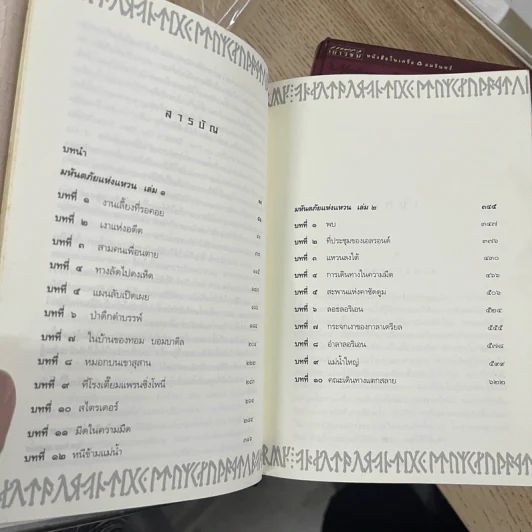 สารบัญ
บทนำ
มหันตภัยแห่งแหวน เล่ม ๑
บทที่ ๑ งานเลี้ยงที่รอคอย
บทที่ ๒ เงาแห่งอดีต
บทที่ ๓ สามคนเพื่อนตาย
บทที่ ๔ ทางลัดไปดงเห็ด
บทที่ ๕ แผนลับเปิดเผย
บทที่ ๖ ป่าดึกดำบรรพ์
บทที่ ๗ ในบ้านของทอม บอมบาดิล
บทที่ ๘ หมอกบนเขาสุสาน
บทที่ ๙ ที่โรงเตี๊ยมแพรนซิงโพนี่
บทที่ ๑๐ สไตรเดอร์
บทที่ ๑๑ มีดในความมืด
บทที่ ๑๒ หนีข้ามแม่น้ำ
หนังสือในเครือ อมรินทร์
มหันตภัยแห่งแหวน เล่ม ๒ ๓๔๕
บทที่ ๑ พบ ๓๔๗
บทที่ ๒ ที่ประชุมของเอลรอนด์ ๓๗๖
บทที่ ๓ แหวนลงใต้ ๔๓๐
บทที่ ๔ การเดินทางในความมืด ๔๖๖
บทที่ ๕ สะพานแห่งคาซัดดูม ๕๐๖
บทที่ ๖ ลอธลอริเอน ๕๒๔
บทที่ ๗ กระจกเงาของกาลาเดรียล ๕๕๕
บทที่ ๘ อำลาลอริเอน ๕๗๘
บทที่ ๙ แม่น้ำใหญ่ ๕๙๙
บทที่ ๑๐ คณะเดินทางแตกสลาย ๖๒๒